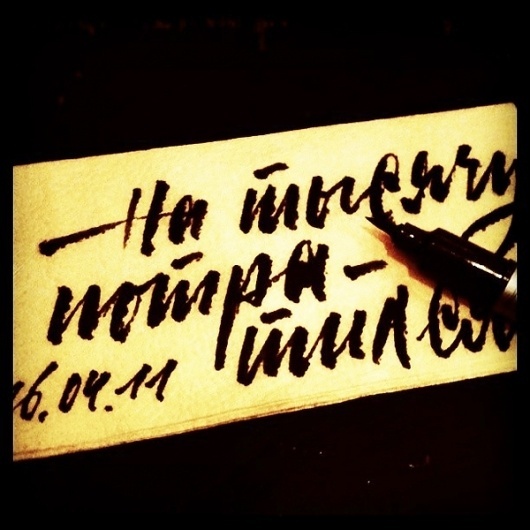 — На тысячи
потра-
тился
16.04.11